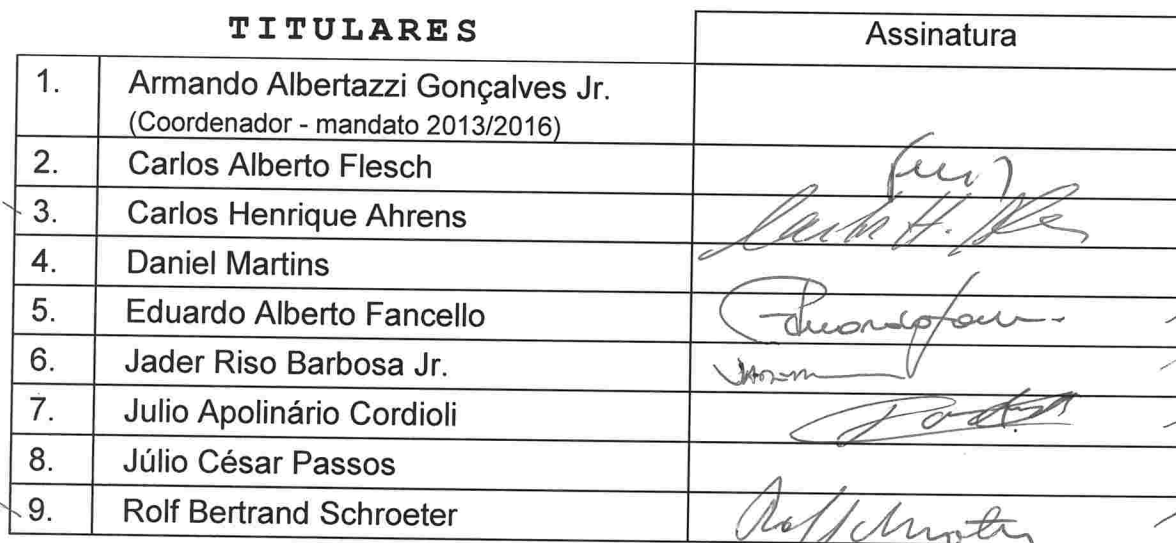 TITULARES
Assinatura
1. Armando Albertazzi Gonçalves Jr.
(Coordenador - mandato 2013/2016)
2. Carlos Alberto Flesch
3. Carlos Henrique Ahrens
4. Daniel Martins
5. Eduardo Alberto Fancello
6. Jader Riso Barbosa Jr.
7. Julio Apolinário Cordioli
8. Júlio César Passos
9. Rolf Bertrand Schroeter